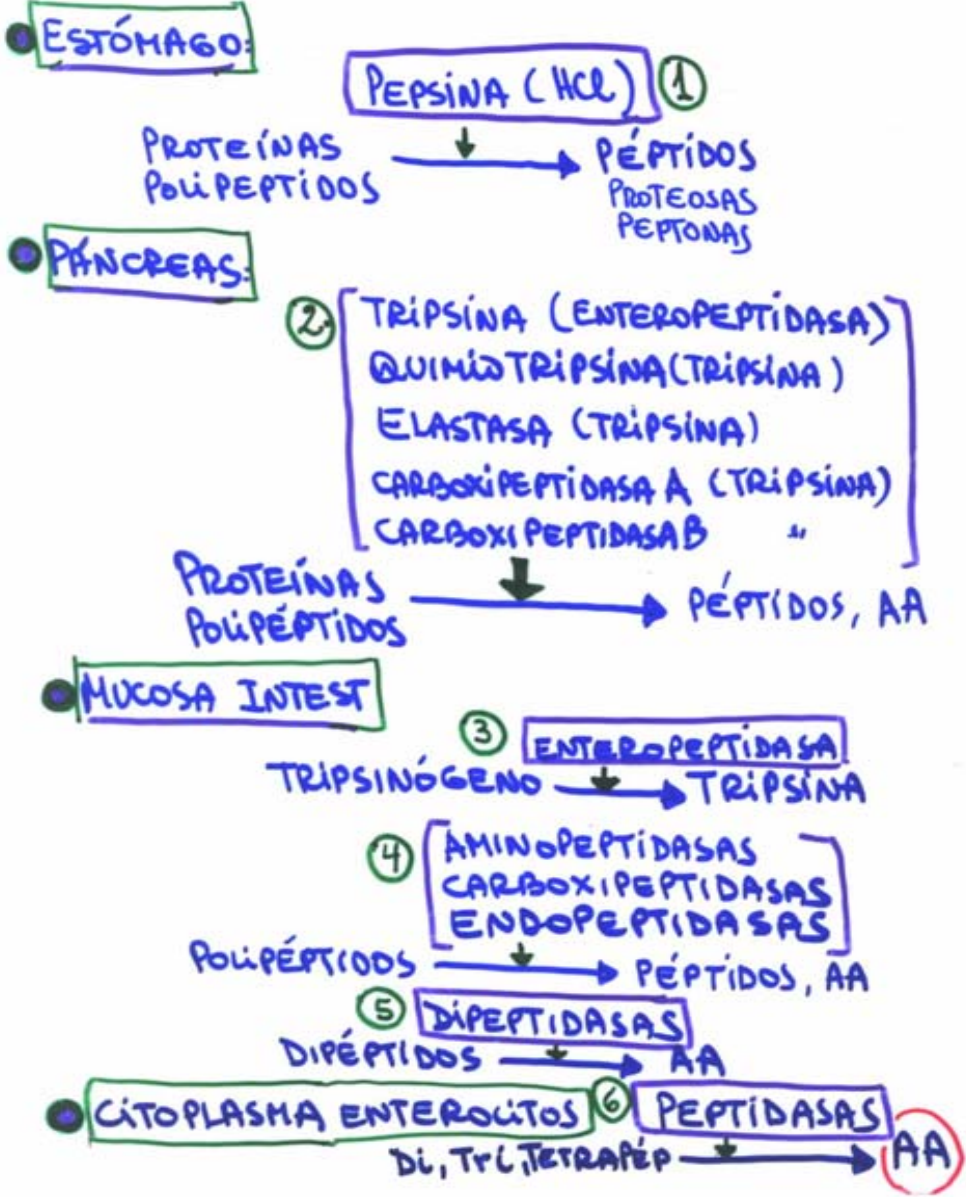 ESTÓMAGO:
PEPSINA (HCl) 1
PROTEÍNAS → PÉPTIDOS
POLIPEPTIDOS PROTEOSAS
PEPTONAS
PÁNCREAS:
2. TRIPSINA (ENTEROPEPTIDASA)
QUIMIOTRIPSINA (TRIPSINA)
ELASTASA (TRIPSINA)
CARBOXIPEPTIDASA A (TRIPSINA)
CARBOXIPEPTIDASA B "
PROTEÍNAS → PÉPTIDOS, AA
POLIPÉPTIDOS
MUCOSA INTEST
3 ENTEROPEPTIDASA
TRIPSINÓGENO → TRIPSINA
4 AMINOPEPTIDASAS
CARBOXIPEPTIDASAS
ENDOPEPTIDASAS
POLIPÉPTIDOS → PÉPTIDOS, AA
5 DIPEPTIDASAS
DIPÉPTIDOS → AA
CITOPLASMA ENTEROCITOS 6 PEPTIDASAS
Di, Tri, TETRAPÉP → AA